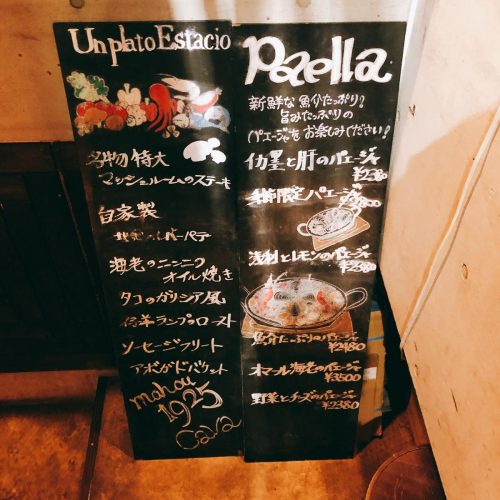 Un plato Estacio
名物 特大
マッシュルームのステーキ
自家製
レバーパテ
海老のニンニク
オイル焼き
タコのガリシア風
仔羊ランプのロースト
ソーセージフリート
アボカドバケット
mahou
1925
Cava
Paella
新鮮な魚介たっぷり!
旨みたっぷりの
パエージャをお楽しみください!
イカ墨と肝のパエージャ
¥2380
季節限定パエージャ
浅利とレモンのパエージャ
¥2380
魚介たっぷりのパエージャ
¥2480
オマール海老のパエージャ
¥3500
野菜とチーズのパエージャ
¥2380